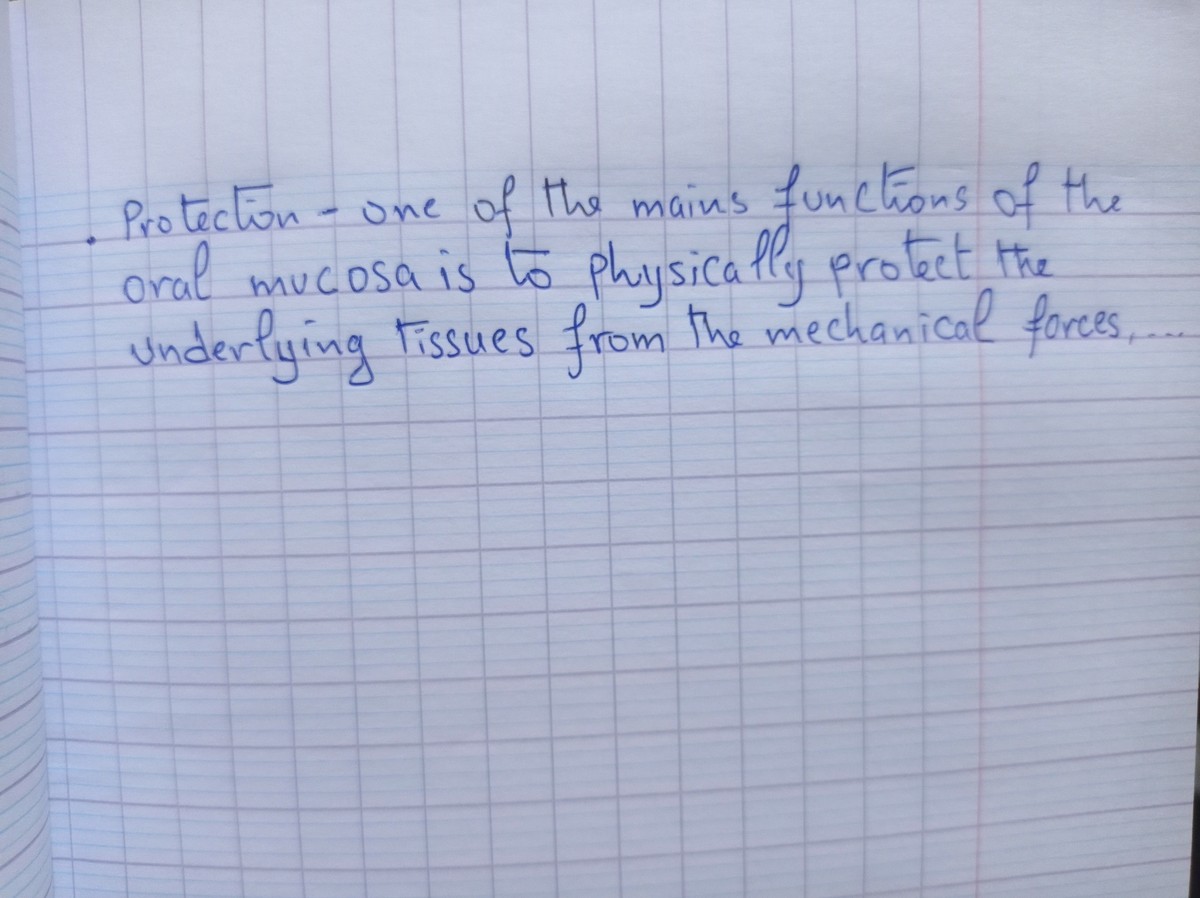 . Protection - one of the mains functions of the
oral mucosa is to physically protect the
underlying tissues from the mechanical forces,....